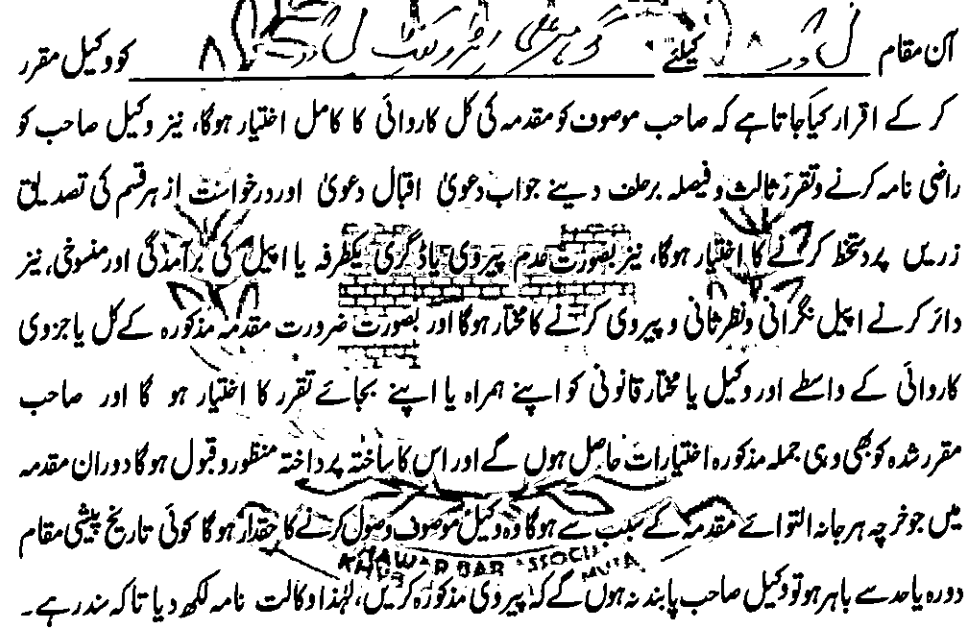 آن مقام کیلئے کو وکیل مقرر
کر کے اقرار کیا جاتا ہے کہ صاحب موصوف کو مقدمہ کی کل کاروائی کا کامل اختیار ہوگا، نیز وکیل صاحب کو
راضی نامہ کرنے وتقرر ثالث و فیصلہ برحلف دینے جواب دعویٰ اقبال دعویٰ اور درخواست از ہر قسم کی تصدیق
زریں پر دستخط کرنے کا اختیار ہوگا، نیز بصورت عدم پیروی یا ڈگری یکطرفہ یا اپیل کی برآمدگی اور منسوخی، نیز
دائر کرنے اپیل نگرانی ونظرثانی و پیروی کرنے کا مختار ہوگا اور بصورت ضرورت مقدمہ مذکورہ کے کل یا جزوی
کاروائی کے واسطے اور وکیل یا مختار قانونی کو اپنے ہمراہ یا اپنے بجائے تقرر کا اختیار ہو گا اور صاحب
مقرر شدہ کو بھی وہی جملہ مذکورہ اختیارات حاصل ہوں گے اور اس کا ساختہ پرداختہ منظور و قبول ہوگا دوران مقدمہ
میں جو خرچہ ہرجانہ التوائے مقدمہ کے سبب سے ہوگا وہ وکیل موصوف وصول کرنے کا حقدار ہوگا کوئی تاریخ پیشی مقام
BAR
دورہ یا حد سے باہر ہو تو وکیل صاحب پابند نہ ہوں گے کہ پیروی مذکورہ کریں، لہٰذا وکالت نامہ لکھ دیا تاکہ سند رہے۔